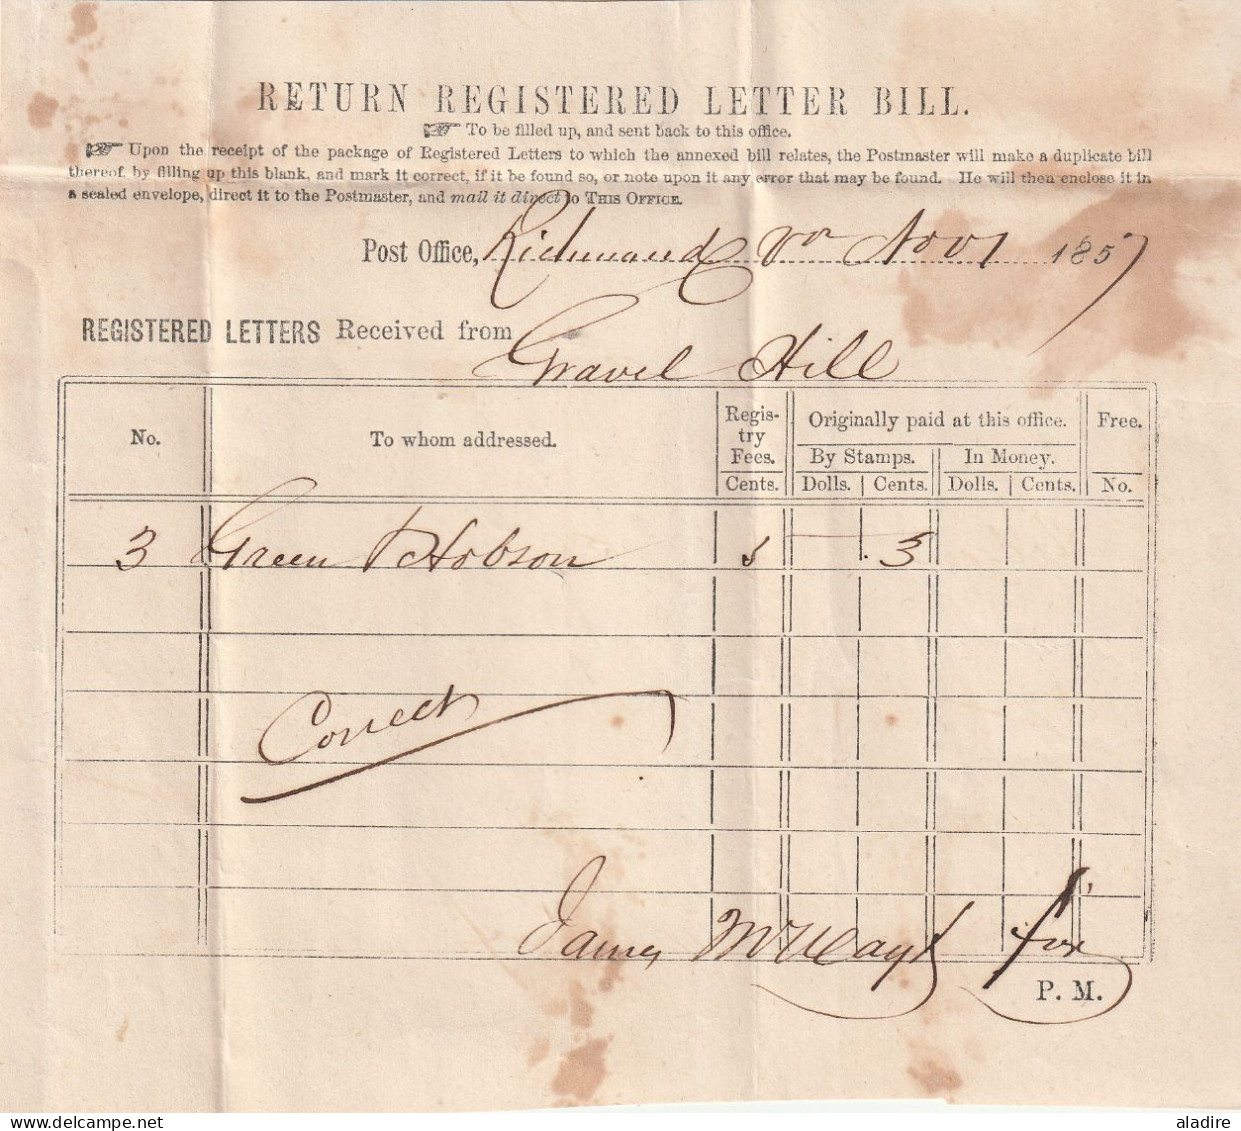 RETURN REGISTERED LETTER BILL.
☞ To be filled up, and sent back to this office.
☞ Upon the receipt of the package of Registered Letters to which the annexed bill relates, the Postmaster will make a duplicate bill
thereof, by filling up this blank, and mark it correct, if it be found so, or note upon it any error that may be found. He will then enclose it in
a sealed envelope, direct it to the Postmaster, and mail it direct to THIS OFFICE.
Post Office, Richmond Va Nov 1 1857
REGISTERED LETTERS Received from Gravel Hill
No. To whom addressed. Regis-try Fees. Originally paid at this office. Free.
By Stamps. In Money.
Cents. Dolls. Cents. Dolls. Cents. No.
3 Green Hobson 5 3
Correct
James
for
P. M.
aladire